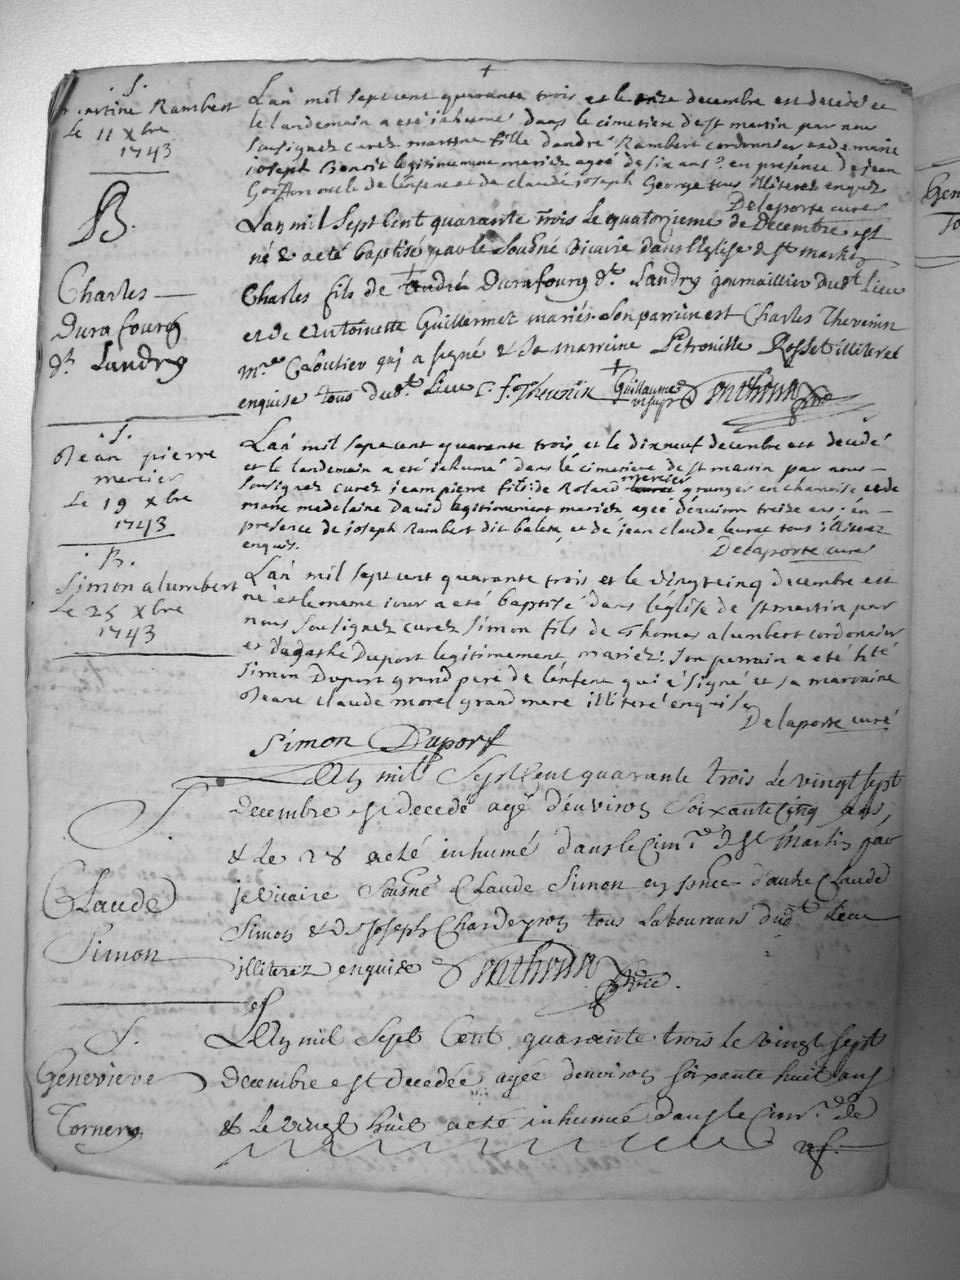 S.
martine Rambert
Le 11 xbre
1743
Lan mil sept cent quarante trois et le onze decembre est decedé et
le landemain a eté inhumé dans le cimetiere de st martin par nous
soussignez curez martine fille dandré Rambert cordonnier et de marie
joseph Benoit legitimement mariez ageé de six ans en présence de jean
oncle de lenfent et de claude joseph George tous illiterez enquis
Delaporte curé
B.
Charles
Durafourg
dt Landry
Lan mil sept Cent quarante trois Le quatorzieme de Decembre est
né & a eté baptisé par le sousné vicaire dans l'Eglise de st martin
Charles fils de André Durafourg dt Landry journaillier dudt Lieu
et de Antoinette Guillermet mariés. Son parrein est Charles Thevenin
mre qui a signé & sa marreine Petronille Rosset illiteret
enquise tous dudt Lieu C. f. Thevenin
Guillaume
S.
Jean pierre
mercier
Le 19 xbre
1743
Lan mil sept cent quarante trois et le dixneuf decembre est decédé
et le landemain a eté inhumé dans le cimetiere de st martin par nous
soussignez curez jean pierre fils de Roland mercier granger en chamoise et de
marie madelaine David legitimement mariez agee denviron treize ans en
presence de joseph Rambert dit et de jean claude tous illiterez
enquis.
Delaporte curé
B.
Simon alumbert
Le 25 xbre
1743
Lan mil sept cent quarante trois et le vingt cinq decembre est
né et le meme jour a eté baptisé dans l'église de st martin par
nous soussignez curez simon fils de Thomas alumbert cordonnier
et d'agathe Duport legitimement mariez: son perrain a eté
simon Duport grand pere de lenfent qui a signé et sa marraine
Jeane claude morel grand mere illiteré enquise
Delaporte curé
Simon Duport
S
Claude
Simon
Lan mil Sept Cent quarante trois le vingt sept
decembre est decedé agé d'environ soixante cinq ans,
& le 28 a eté inhumé dans le Cimre de St Martin par
je vicaire sousné Claude Simon en pnce d'autre Claude
Simon & de Joseph Chardeyron tous Laboureurs dudt Lieu
illiterez enquise
S.
Genevieve
Tornery
Lan mil Sept Cent quarante trois le vingt sept
decembre est decedée agée denviron soixante huit ans
& le vingt huit a eté inhumé dans le Cimre de